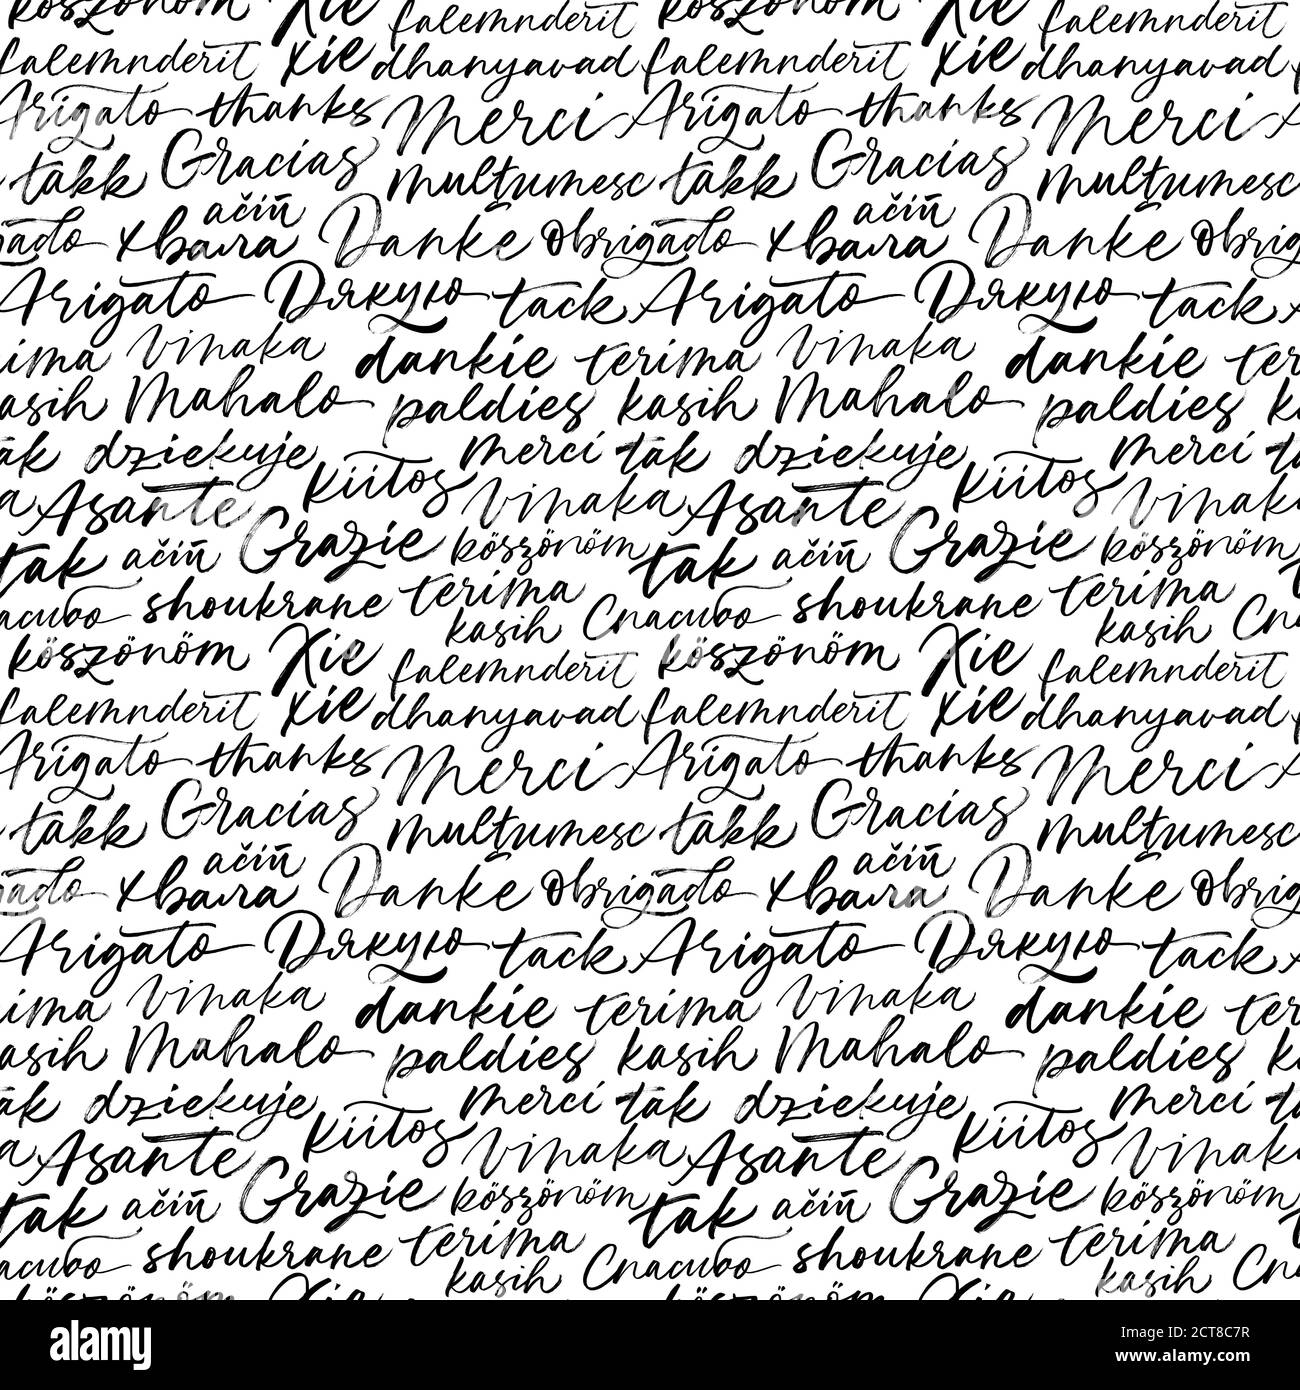 köszönöm Xie falemnderit köszönöm Xie falemnderit
falemnderit xie dhanyavad falemnderit xie dhanyavad
Arigato thanks Merci Arigato thanks Merci
takk Gracias multumesc takk Gracias multumesc
ačiū ačiū
хвала Danke Obrigado хвала Danke
Arigato Дякую tack Arigato Дякую tack
vinaka dankie terima vinaka dankie
kasih Mahalo paldies kasih Mahalo paldies
tāk dziekuje merci tāk dziekuje merci
Asante kiitos vinaka Asante kiitos
tak ačiū Grazie köszönöm tak ačiū Grazie köszönöm
shoukrane terima shoukrane terima
kasih Спасибо kasih
köszönöm Xie falemnderit köszönöm Xie falemnderit
falemnderit xie dhanyavad falemnderit xie dhanyavad
Arigato thanks Merci Arigato thanks Merci
takk Gracias multumesc takk Gracias multumesc
ačiū ačiū
хвала Danke Obrigado хвала Danke
Arigato Дякую tack Arigato Дякую tack
vinaka dankie terima vinaka dankie
kasih Mahalo paldies kasih Mahalo paldies
tāk dziekuje merci tāk dziekuje merci
Asante kiitos vinaka Asante kiitos
tak ačiū Grazie köszönöm tak ačiū Grazie köszönöm
shoukrane terima shoukrane terima
kasih Спасибо kasih
alamy
Image ID: 2CT8C7R
www.alamy.com